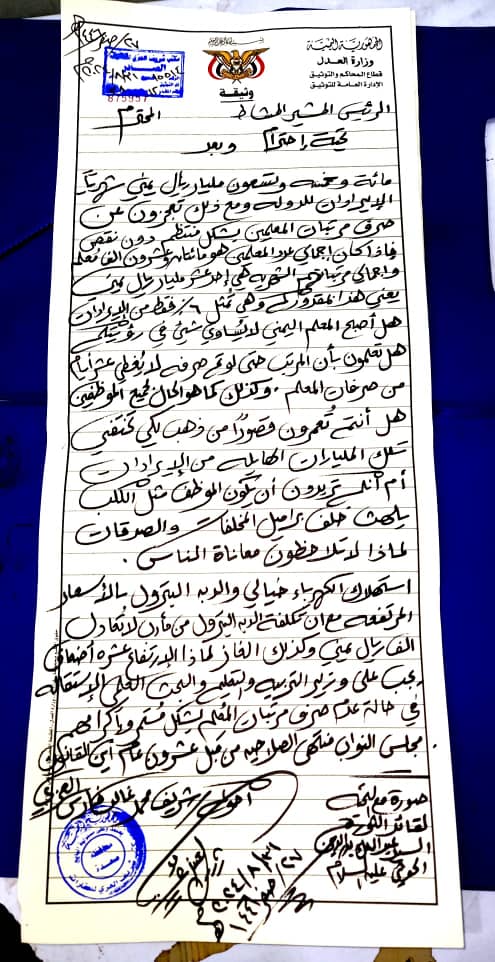 الجمهورية اليمنية
وزارة العدل
قطاع المحاكم والتوثيق
الإدارة العامة للتوثيق
وثيقة
٢٧/صفر/١٤٤٦هـ
875957
الرئيس المشير المشاط المحترم
تحية إحترام وبعد
مائة وخمسه وتسعون مليار ريال يمني شهرياً
الإيرادات للدوله ومع ذلك تعجزون عن
صرف مرتبات المعلمين بشكل منتظم دون نقص
فإذا كان إجمالي عدد المعلمين هو مائتان وعشرون الف معلم
وإجمالي مرتباتهم الشهريه هي إحد عشر مليار ريال يمني
يعني هذا المقرر لهم وهي تُمثل ٦٪ فقط من الإيرادات
هل أصبح المعلم اليمني لا يساوي شئ في رؤيتكم
هل تعلمون بأن المرتب حتى لو تم صرفه لا يغطي عشر أيام
من صرفات المعلم . وكذلك كما هو الحال لجميع الموظفين
هل أنتم تُعمرون قصوراً من ذهب لكي تختفي
تلك المليارات الهائله من الإيرادات
أم أنكم تريدون أن يكون الموظف مثل الكلب
يلهث خلف براميل المخلفات والصدقات
لماذا لا تلاحظون معاناة الناس .
استهلاك الكهرباء خيالي والدبه البترول بالأسعار
المرتفعه مع أن تكلفة الدبه البترول من مأرب لا تُعادل
الف ريال يمني وكذلك الغاز لماذا الإرتفاع عشره أضعاف
يجب على وزير التربيه والتعليم والبحث العلمي الإستقاله
في حالة عدم صرف مرتبات المعلم بشكل مُستمر وإكرامهم
مجلس النواب منتهي الصلاحيه من قبل عشرون عام أين القانون
صورة مع التحيه
لقائد الثوره
السيد عبدالملك بدرالدين
الحوثي عليه السلام
المواطن/ شريف محمد غالب فارس العمري
٢٠٢٤/٨/٣١م
٢٧/صفر/١٤٤٦هـ